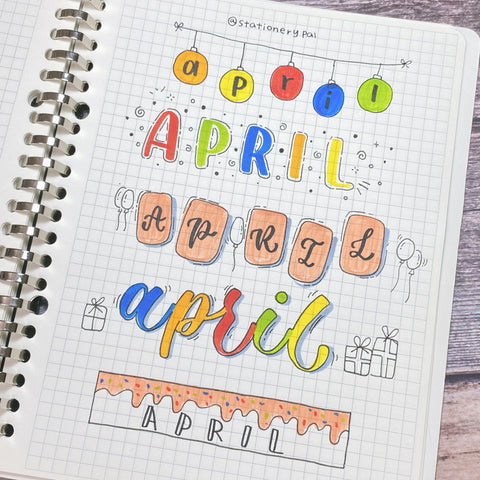 @stationerypal
april
APRIL
APRIL
april
APRIL